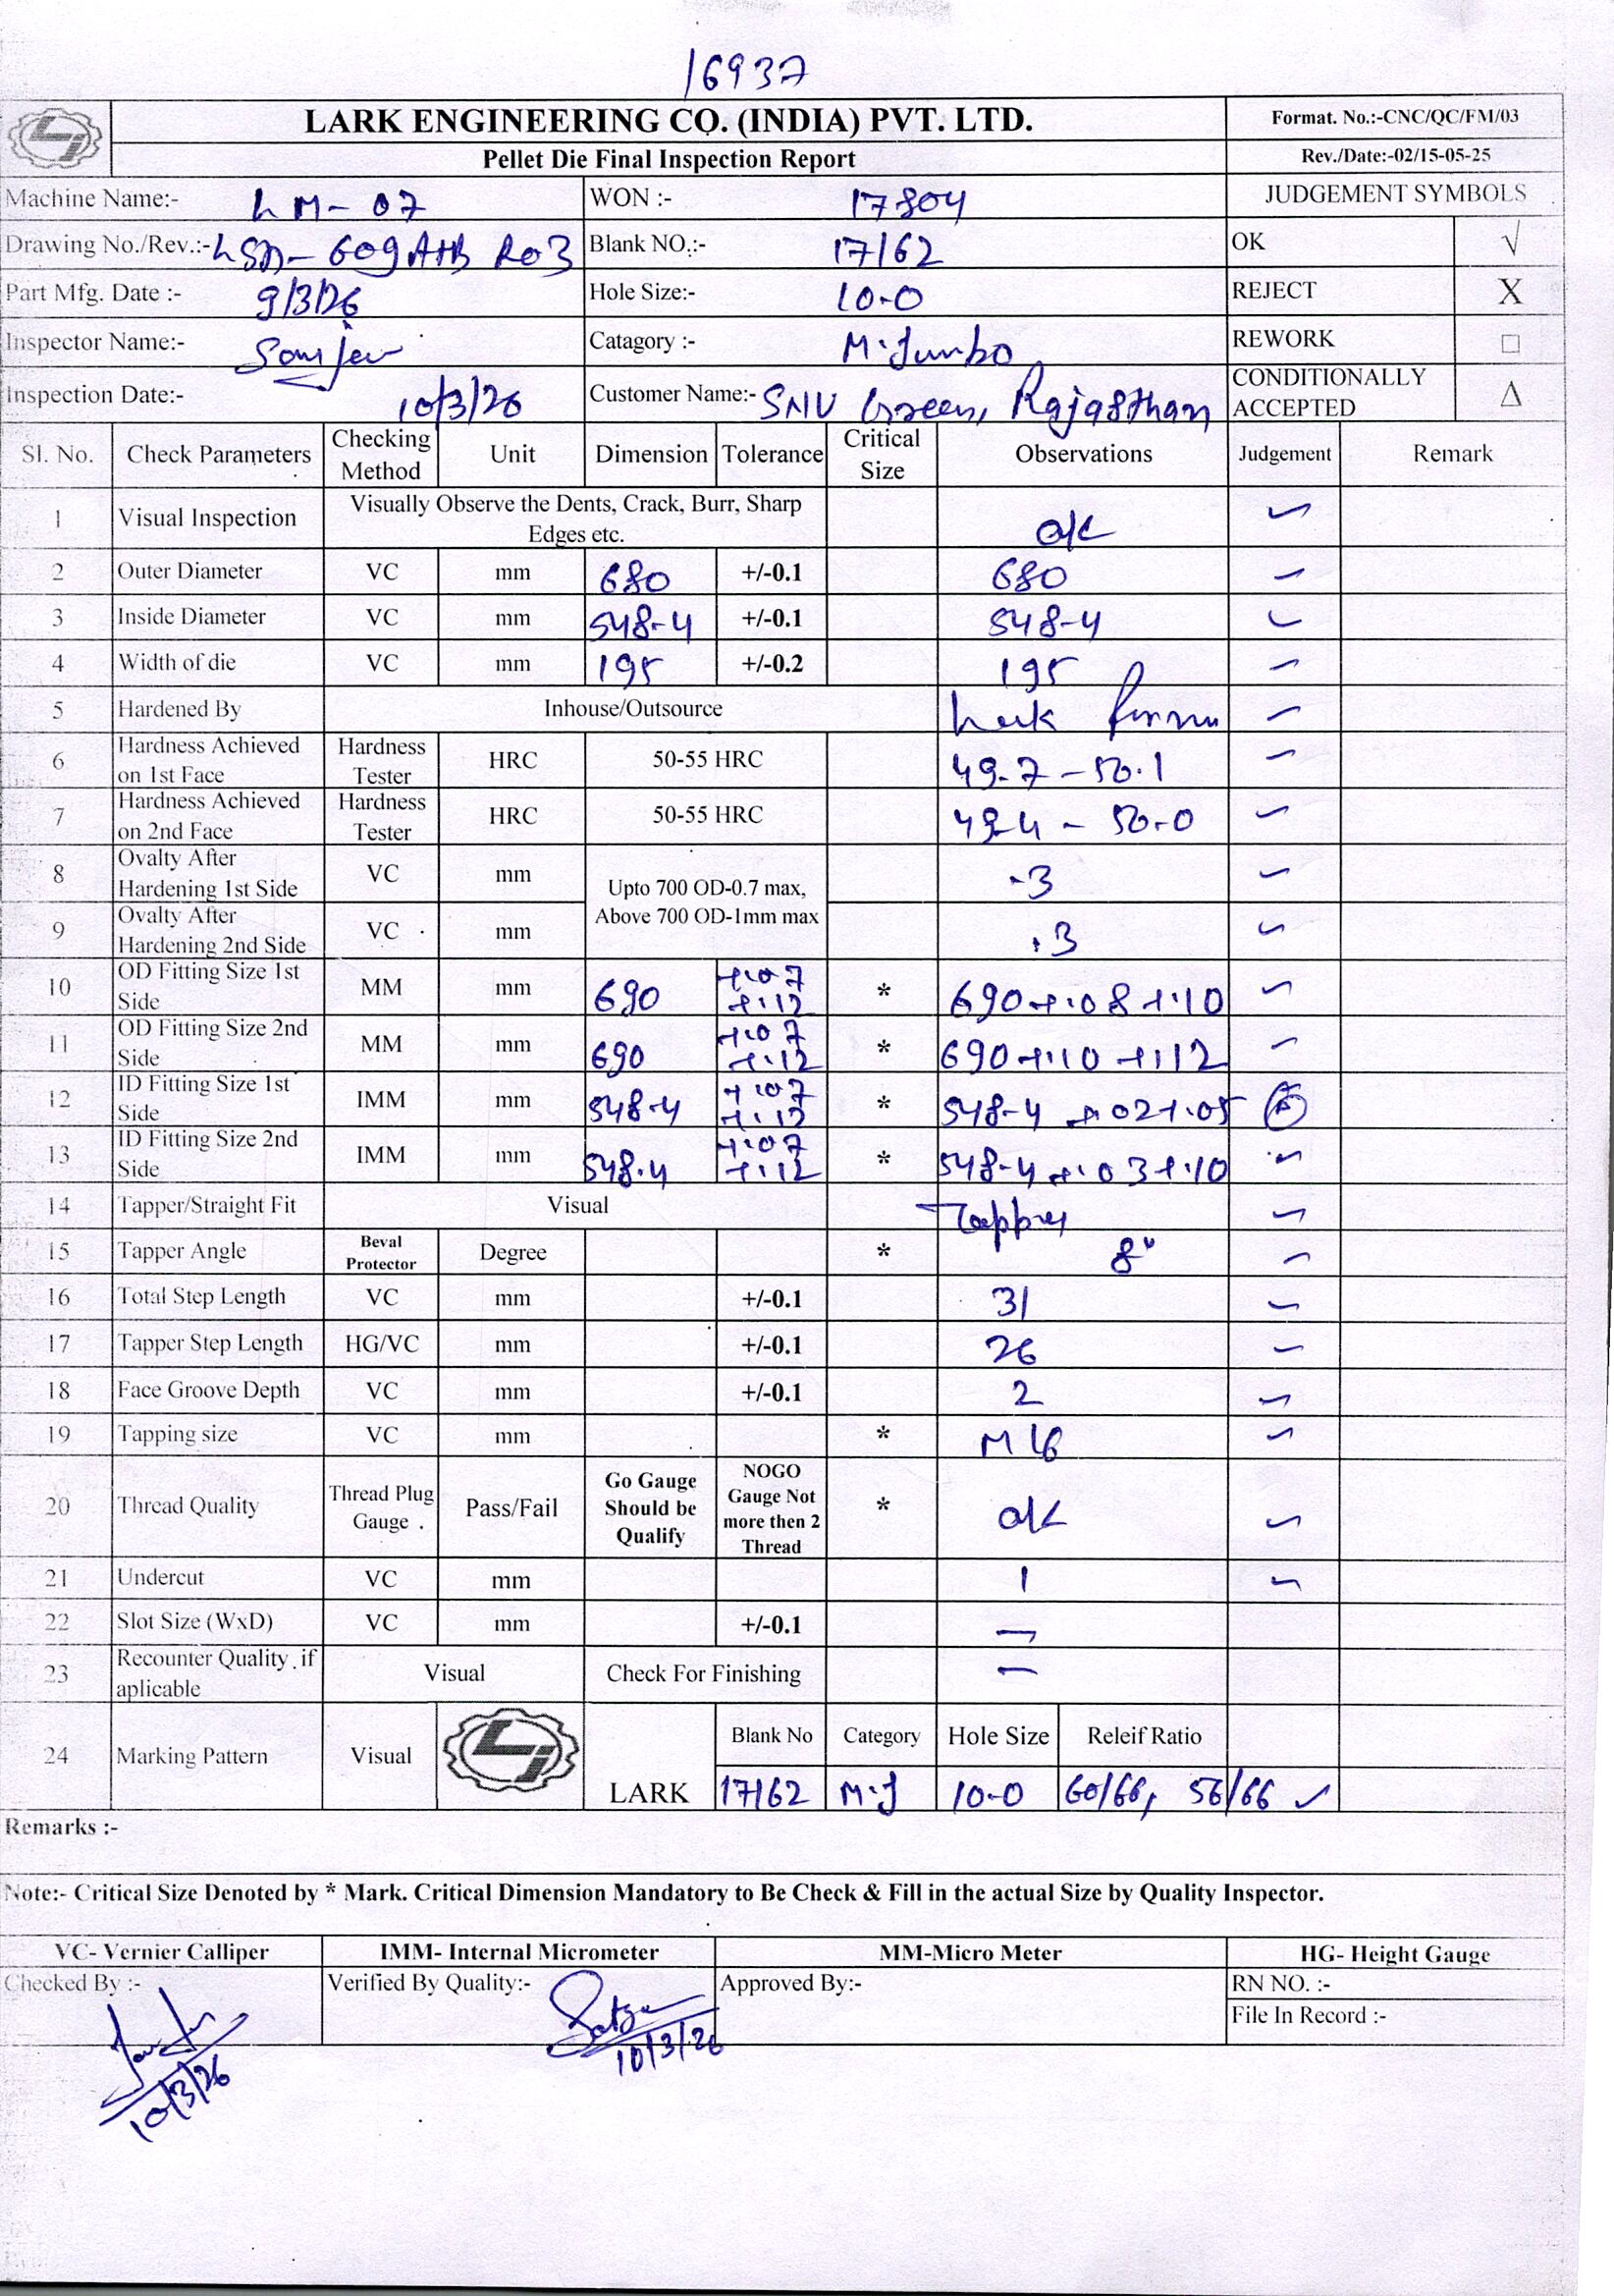 16937
LARK ENGINEERING CO. (INDIA) PVT. LTD.
Format. No.:-CNC/QC/FM/03
Pellet Die Final Inspection Report
Rev./Date:-02/15-05-25
Machine Name:- LM-07 WON :- 17804 JUDGEMENT SYMBOLS
Drawing No./Rev.:- Blank NO.:- 17162 OK √
Part Mfg. Date :- 9/3/26 Hole Size:- 10-0 REJECT X
Inspector Name:- Catagory :- M.Jumbo REWORK □
Inspection Date:- 10/3/26 Customer Name:- SNV Green, Rajasthan CONDITIONALLY ACCEPTED Δ
Sl. No. Check Parameters Checking Method Unit Dimension Tolerance Critical Size Observations Judgement Remark
1 Visual Inspection Visually Observe the Dents, Crack, Burr, Sharp Edges etc. o/k ✓
2 Outer Diameter VC mm 680 +/-0.1 680 ✓
3 Inside Diameter VC mm 548-4 +/-0.1 548-4 ✓
4 Width of die VC mm 195 +/-0.2 195 ✓
5 Hardened By Inhouse/Outsource ✓
6 Hardness Achieved on 1st Face Hardness Tester HRC 50-55 HRC 49.7 - 50.1 ✓
7 Hardness Achieved on 2nd Face Hardness Tester HRC 50-55 HRC 49.4 - 50.0 ✓
8 Ovalty After Hardening 1st Side VC mm Upto 700 OD-0.7 max, Above 700 OD-1mm max .3 ✓
9 Ovalty After Hardening 2nd Side VC mm .3 ✓
10 OD Fitting Size 1st Side MM mm 690 +.07 +.12 * 690+.08+.10 ✓
11 OD Fitting Size 2nd Side MM mm 690 +.07 +.12 * 690+.10+.12 ✓
12 ID Fitting Size 1st Side IMM mm 548-4 +.07 +.12 * 548-4 +.02+.05
13 ID Fitting Size 2nd Side IMM mm 548.4 +.07 +.12 * 548-4+.03+.10 ✓
14 Tapper/Straight Fit Visual Tapper ✓
15 Tapper Angle Beval Protector Degree * 8° ✓
16 Total Step Length VC mm +/-0.1 31 ✓
17 Tapper Step Length HG/VC mm +/-0.1 26 ✓
18 Face Groove Depth VC mm +/-0.1 2 ✓
19 Tapping size VC mm * M16 ✓
20 Thread Quality Thread Plug Gauge . Pass/Fail Go Gauge Should be Qualify NOGO Gauge Not more then 2 Thread * o/k ✓
21 Undercut VC mm 1 ✓
22 Slot Size (WxD) VC mm +/-0.1 —
23 Recounter Quality if aplicable Visual Check For Finishing —
24 Marking Pattern Visual LARK Blank No Category Hole Size Releif Ratio
17162 M.J 10-0 60/66, 56/66 ✓
Remarks :-
Note:- Critical Size Denoted by * Mark. Critical Dimension Mandatory to Be Check & Fill in the actual Size by Quality Inspector.
VC- Vernier Calliper IMM- Internal Micrometer MM-Micro Meter HG- Height Gauge
Checked By :- Verified By Quality:- Approved By:- RN NO. :-
File In Record :-
10/3/26
10/3/26